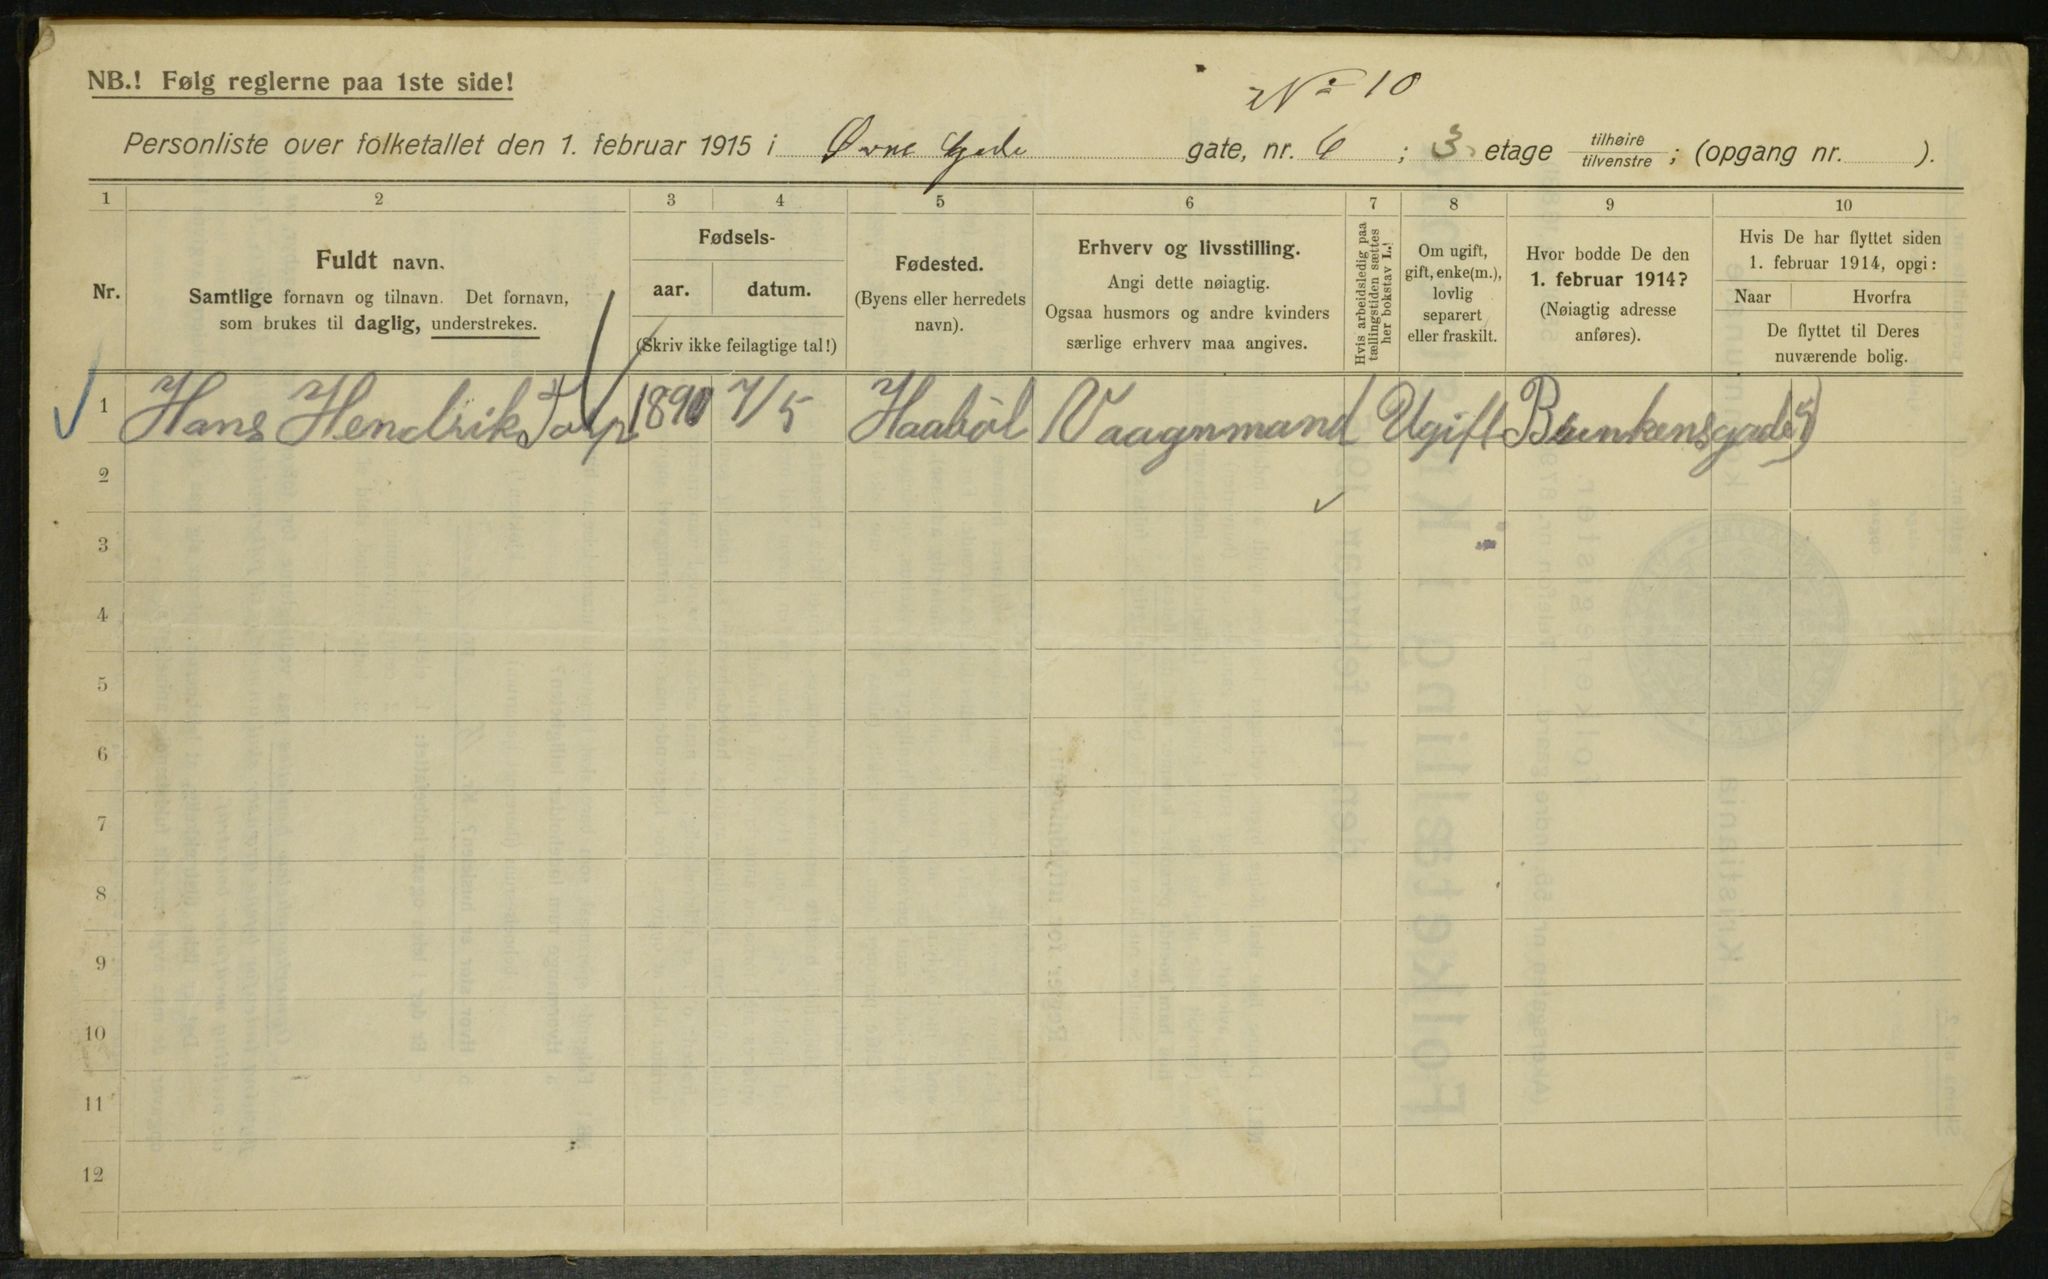 NB.! Følg reglerne paa 1ste side!
No 10
Personliste over folketallet den 1. februar 1915 i Örne Gade gate, nr. 6 ; 3. etage tilhøire tilvenstre ; (opgang nr. ).
1 2 3 4 5 6 7 8 9 10
Nr.
Fuldt navn.
Samtlige fornavn og tilnavn. Det fornavn,
som brukes til daglig, understrekes.
Fødsels-
aar. datum.
(Skriv ikke feilagtige tal!)
Fødested.
(Byens eller herredets
navn).
Erhverv og livsstilling.
Angi dette nøiagtig.
Ogsaa husmors og andre kvinders
særlige erhverv maa angives.
Hvis arbeidsledig paa
tællingstiden sættes
her bokstav L.!
Om ugift,
gift, enke(m.),
lovlig
separert
eller fraskilt.
Hvor bodde De den
1. februar 1914?
(Nøiagtig adresse
anføres).
Hvis De har flyttet siden
1. februar 1914, opgi:
Naar Hvorfra
De flyttet til Deres
nuværende bolig.
1 Hans Hendrik Torp 1890 7/5 Haaböl Vaagnmand Ugift Brunkensgade 5
2
3
4
5
6
7
8
9
10
11
12